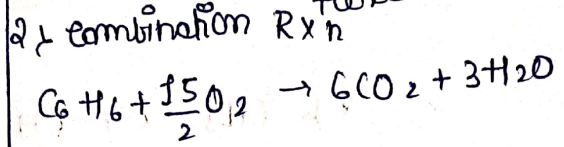 2) combination Rxn
C6H6 + 15/2 O2 → 6CO2 + 3H2O